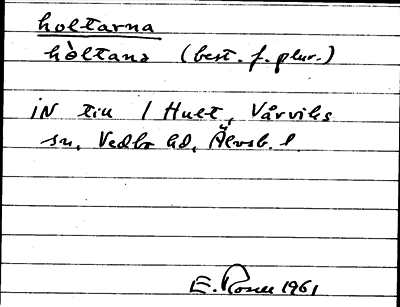 holtarna
hòltana (best. f. plur.)
IN till 1 Hult, Vårviks
sn, Vedbo hd, Älvsb. l.
E. Rosell 1961